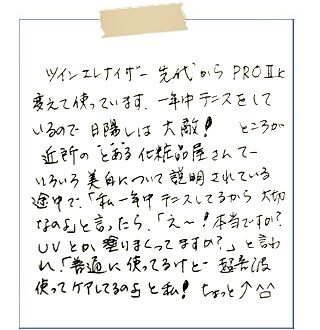 ツインエレナイザー 先代から PROⅡに
変えて使っています、一年中テニスをして
いるので 日陽しは 大敵! ところが
近所の "とある 化粧品屋さんで
いろいろ 美白について 説明されている
途中で、「私一年中テニスしてるから 大切
なのよ」と言ったら、「え〜!本当ですか?
UVとか 塗りまくってますか?」と言わ
れ、「普通に使ってるけど 超音波
使ってケアしてるの」と私! ちょっと↑^^